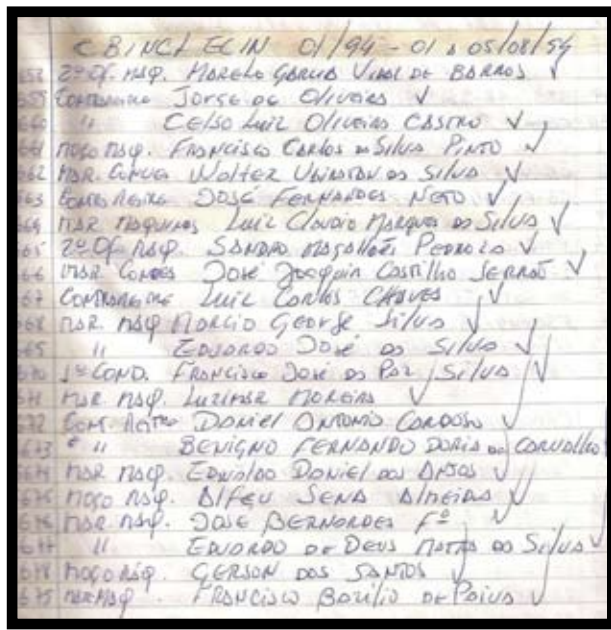 CBINCI ECIN 01/94 - 01 a 05/08/94
658 2º Of. Maq. Marcelo Garcia Vidal de Barros √
659 Contramestre Jorge de Oliveira √
660 " Celso Luiz Oliveira Castro √
661 Moço Maq. Francisco Carlos da Silva Pinto √
662 Mar. Convés Walter Ubiratan da Silva √
663 Contra Mestre José Fernandes Neto √
664 Mar Maquinas Luiz Claudio Marques da Silva √
665 2º Of. Maq. Sandro Magalhães Pedroza √
666 Mar Convés José Joaquin Castilho Serrão √
667 Contramestre Luiz Carlos Chaves √
668 Mar. Maq Marcio George Silva √
669 " Eduardo José da Silva √
670 1º Cond. Francisco José da Paz Silva √
671 Mar Maq. Luzimar Moreira √
672 Cont. Mestre Daniel Antonio Cardoso √
673 " Benigno Fernando Doria de Carvalho
674 Mar Maq. Edvaldo Daniel dos Anjos √
675 Moço Maq. Alfeu Sena Almeida √
676 Mar Maq. José Bernardes Fº √
677 " Eduardo de Deus Matta da Silva √
678 Moço Maq. Gerson dos Santos √
679 Mar Maq. Francisco Bazilio de Paiva √